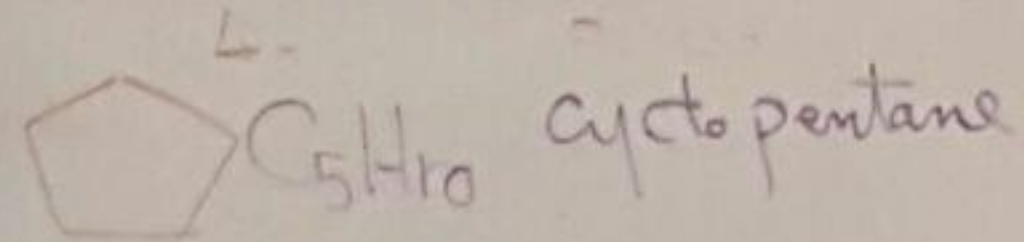 C5H10 cyclopentane